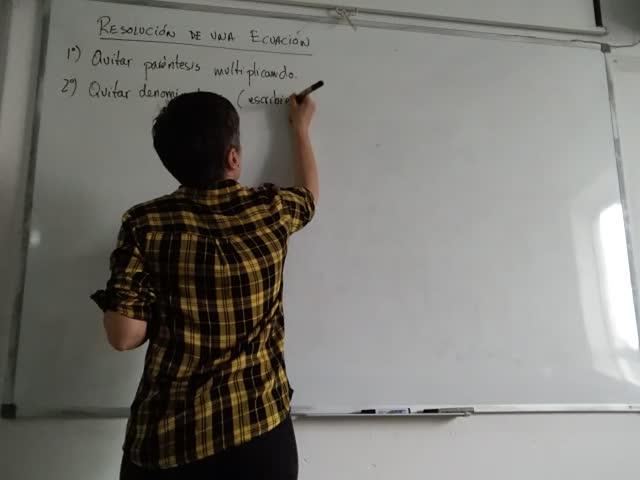 RESOLUCIÓN DE UNA ECUACIÓN
1º) Quitar paréntesis multiplicando.
2º) Quitar (escribie